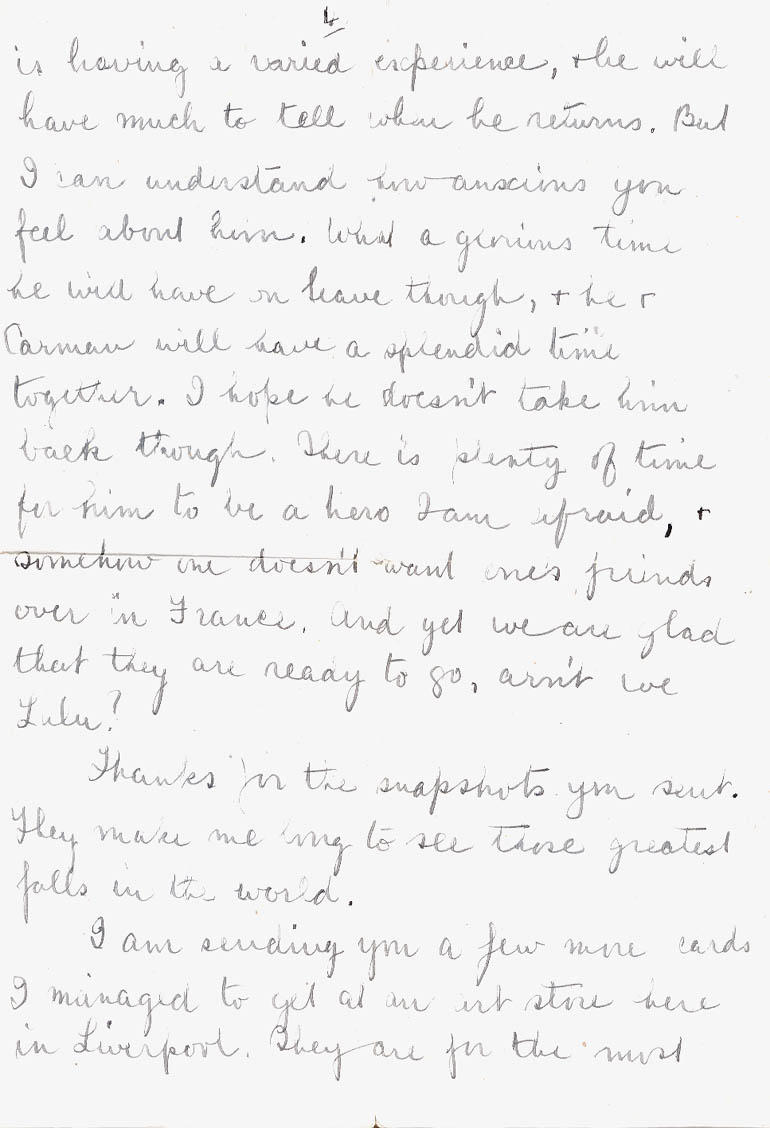 4
is having a varied experience, + he will
have much to tell when he returns. But
I can understand how anxious you
feel about him. What a glorious time
he will have on leave though, + he +
Carman will have a splendid time
together. I hope he doesn't take him
back though. There is plenty of time
for him to be a hero I am afraid, +
somehow one doesn't want one's friends
over in France. And yet we are glad
that they are ready to go, arn't we
Lulu?
Thanks for the snapshots you sent.
They make me long to see those greatest
falls in the world.
I am sending you a few more cards
I managed to get at an art store here
in Liverpool. They are for the most